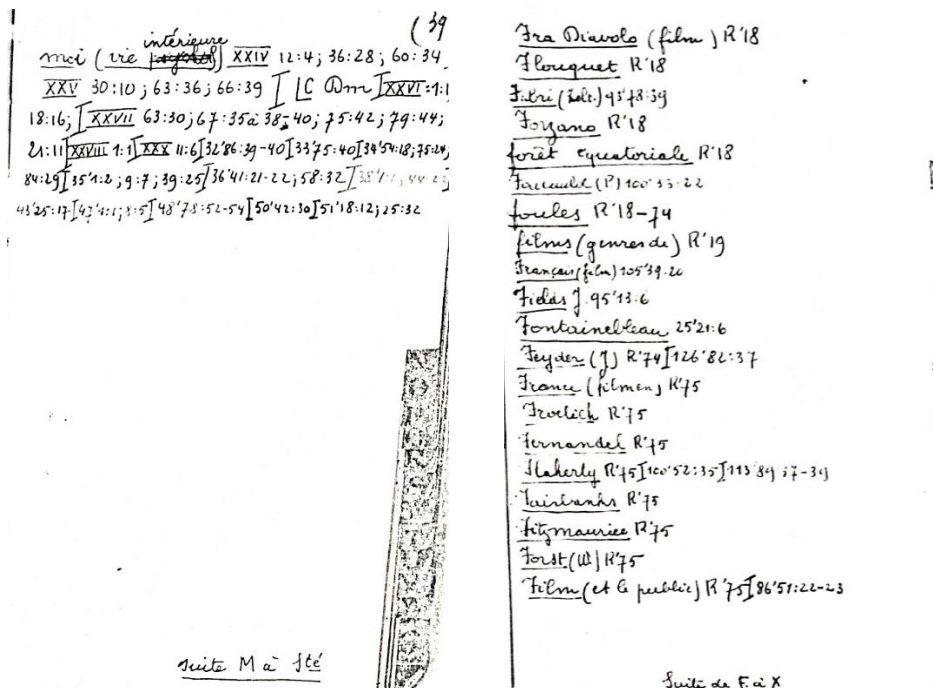 (39
intérieure
moi (vie XXIV 12:4; 36:28; 60:34
XXV 30:10; 63:36; 66:39 [ LC Dm ] XXVI :1:1
18:16; [XXVII 63:30; 67:35 à 38-40; 75:42; 79:44;
21:11 [XXVIII 1:1 [XXX 11:6 [32'86:39-40 [33'75:40 [34'54:18; 75:24,
84:29 [35'1:2; 9:7; 39:25 [36'41:21-22; 58:32 [38'1:1, 44:23
43'25:17 [47'1:1; 8:5 [48'78:52-54 [50'42:30 [51'18:12; 25:32
Suite M à Sté
Fra Diavolo (film) R'18
Flouquet R'18
(Zolt.) 93'78:39
Forzano R'18
forêt équatoriale R'18
(P) 100'33:22
foules R'18-74
films (genres de) R'19
Français (film) 105'39:20
Fields J. 95'13:6
Fontainebleau 25'21:6
Feyder (J) R'74 [126'82:37
France (film en) R'75
Froelich R'75
Fernandel R'75
Flaherty R'75 [100'52:35 [113'89:37-39
Fairbanks R'75
Fitzmaurice R'75
Forst (W) R'75
Film (et le public) R'75 [86'51:22-23
Suite de F. à X